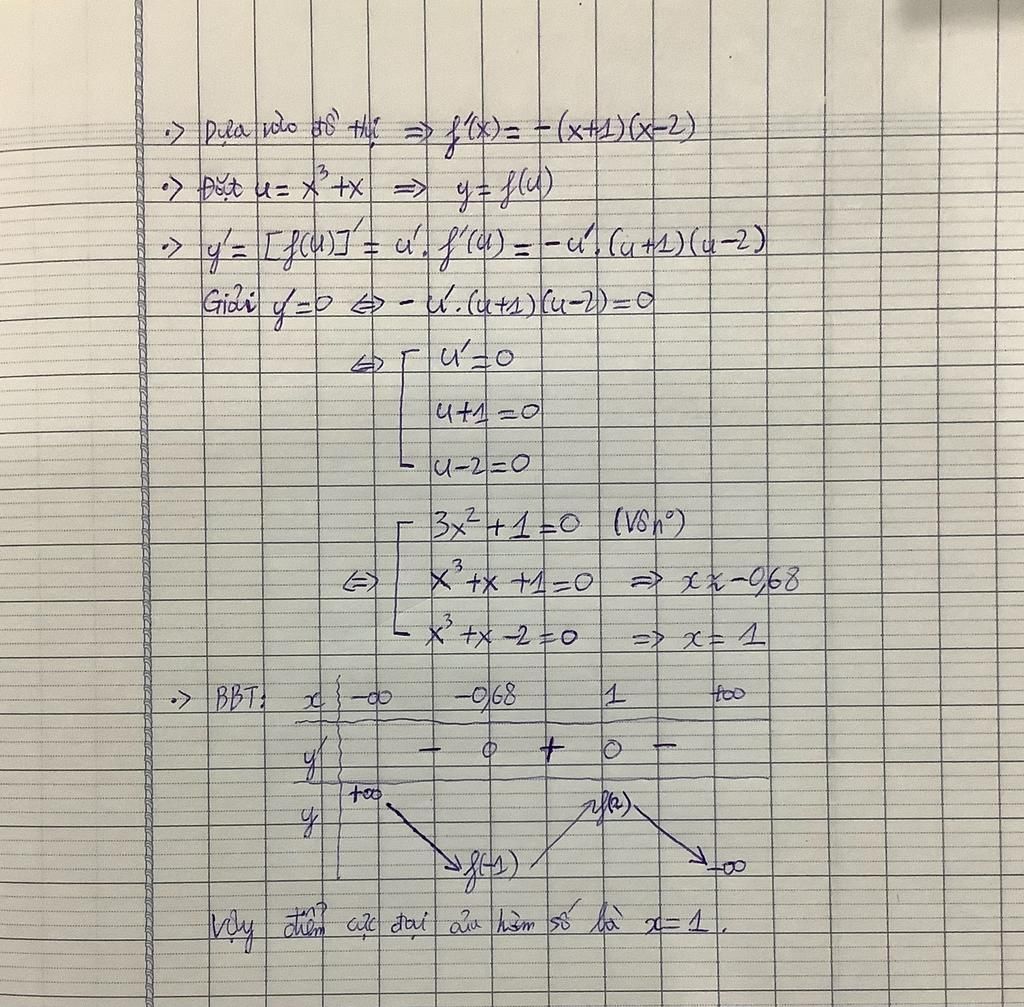 ·> Dựa vào đồ thị => f'(x) = -(x+1)(x-2)
·> Đặt u = x³+x => y = f(u)
·> y' = [f(u)]' = u'. f'(u) = -u'.(u+1)(u-2)
Giải y'=0 <=> -u'.(u+1)(u-2)=0
<=> [ u'=0
u+1=0
u-2=0
<=> [ 3x²+1=0 (Vô n°)
x³+x+1=0 => x≈-0,68
x³+x-2=0 => x=1
·> BBT: x -∞ -0,68 1 +∞
y' - 0 + 0 -
+∞ f(2)
y
f(-1) -∞
Vậy điểm cực đại của hàm số là x=1.